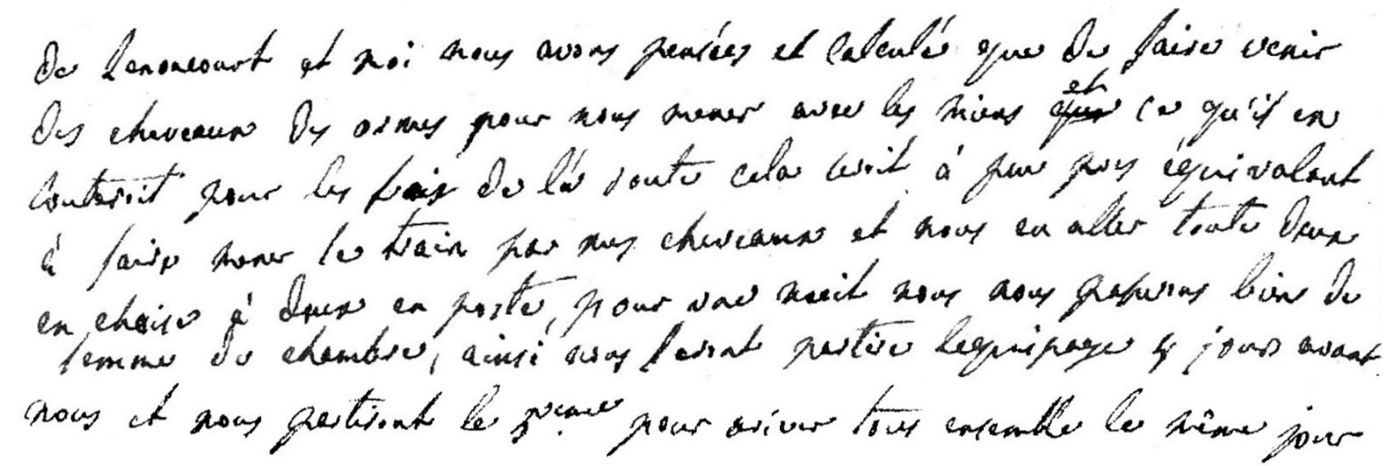 de Lenoncourt et moi nous avons pensées et calculé que de faire venir
des cheveaux des ormes pour nous mener avec les miens et ce qu'il en
couteroit pour les frais de la route cela seroit à peu pres équivalant
à faire mener le train par mes cheveaux et nous en aller toute deux
en chaise à deux en poste, pour une nuit nous nous passerons bien de
femme de chambre, ainsi nous feront partire lequipage 4 jours avant
nous et nous partiront le 5eme pour ariver tous ensemble le même jour